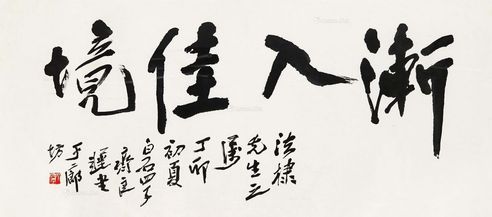 漸入佳境
法棣
先生之
属
丁卯
初夏
白石四子
齊良
遲书
于廊
坊